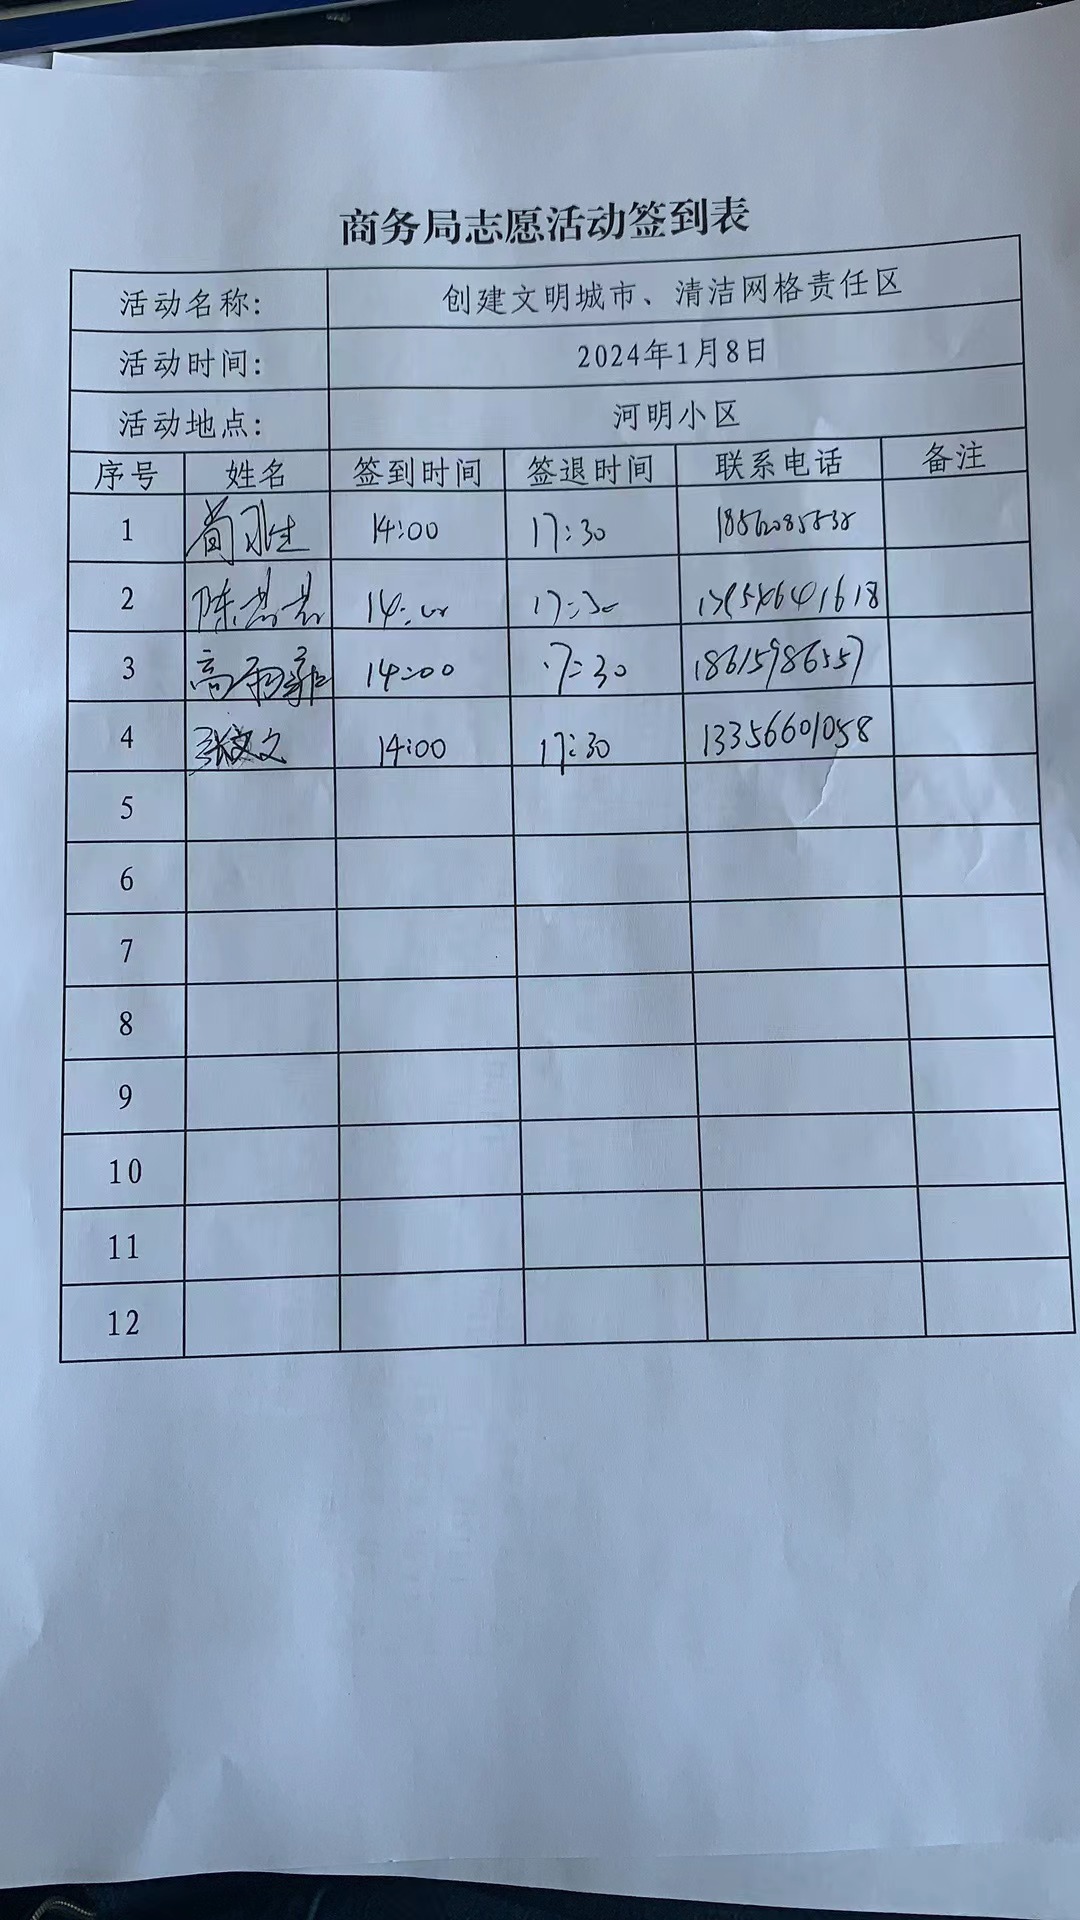 商务局志愿活动签到表
活动名称: 创建文明城市、清洁网格责任区
活动时间: 2024年1月8日
活动地点: 河明小区
序号 姓名 签到时间 签退时间 联系电话 备注
1 14:00 17:30
2 陈 14:00 17:30
3 高 14:00 17:30 18615986557
4 张文文 14:00 17:30 13356601058
5
6
7
8
9
10
11
12